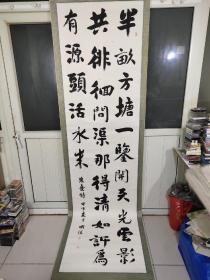 半畝方塘一鑒開天光雲影
共徘徊問渠那得清如許爲
有源頭活水来